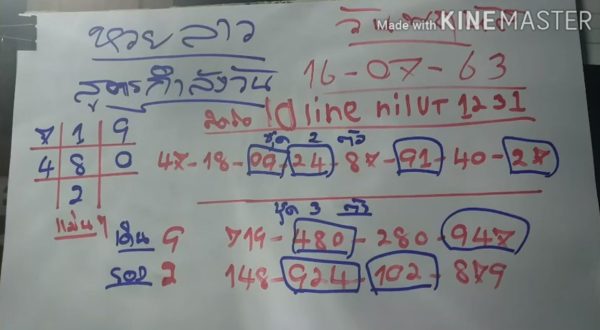 Made with KINEMASTER
หวย ลาว
สูตรกำลังวัน
16-07-63
ID line nilUT 1231
ชุด 2 ตัว
7 1 9
4 8 0
2
47-18-09-24-87-91-40-27
แม่นๆ
ชุด 3 ตัว
เด่น 9
719-480-280-947
รอง 2
148-924-102-879